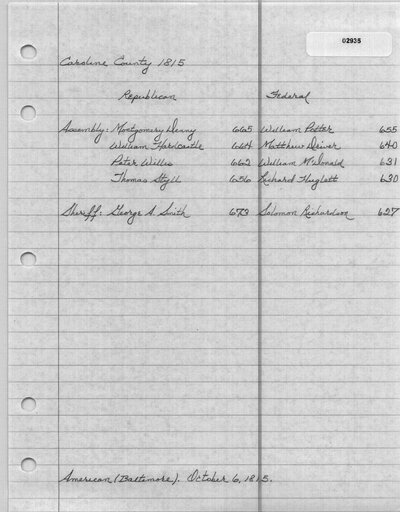 02935
Caroline County 1815
Republican Federal
Assembly: Montgomery Denny 665 William Potter 655
William Hardcastle 664 Matthew Driver 640
Peter Willis 662 William McDonald 631
Thomas Styll 656 Richard Hughlett 630
Sheriff: George A. Smith 673 Solomon Richardson 627
American (Baltimore). October 6, 1815.